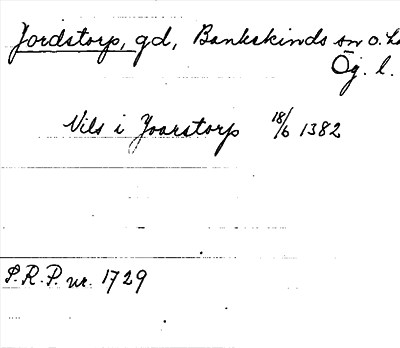 Jordstorp, gd, Bankekinds sn o. h
Ög. l.
Nils i Joarstorp 18/6 1382
S.R.P. nr. 1729